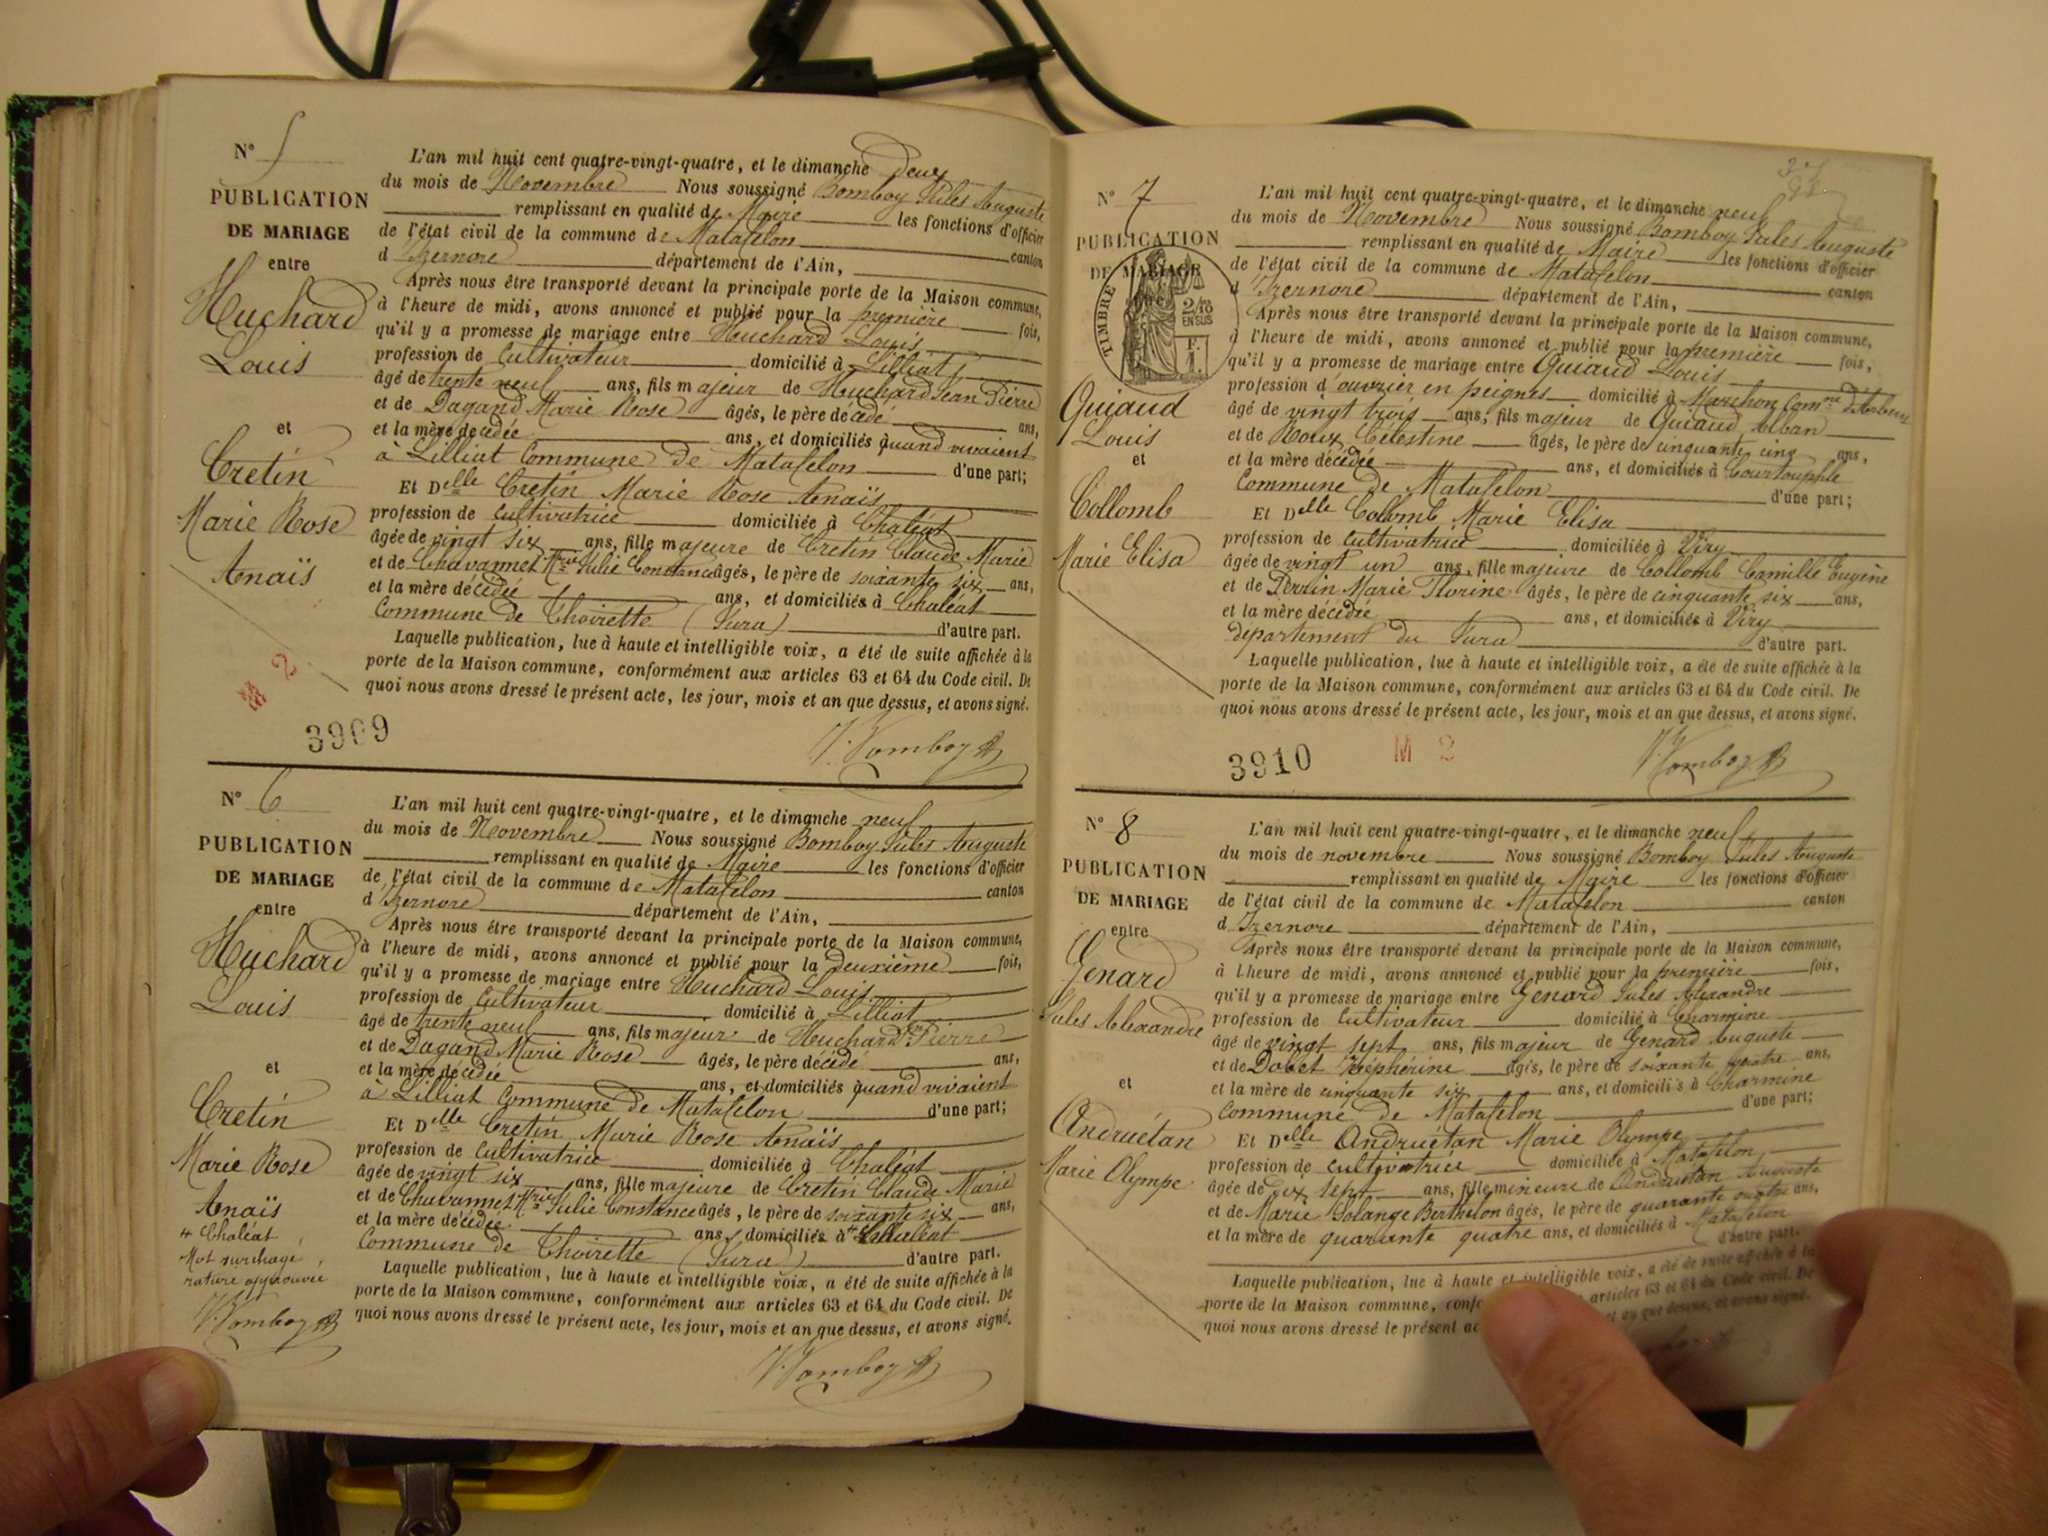 N° 5
PUBLICATION
DE MARIAGE
entre
Huchard
Louis
et
Cretin
Marie Rose
Anaïs
L'an mil huit cent quatre-vingt-quatre, et le dimanche deux
du mois de Novembre Nous soussigné Bomboy Jules Auguste
remplissant en qualité de Maire les fonctions d'officier
de l'état civil de la commune de Matafelon canton
d'Izernore département de l'Ain,
Après nous être transporté devant la principale porte de la Maison commune,
à l'heure de midi, avons annoncé et publié pour la première fois,
qu'il y a promesse de mariage entre Huchard Louis
profession de Cultivateur domicilié à Lilliat
âgé de trente neuf ans, fils majeur de Huchard Jean Pierre
et de Dagand Marie Rose âgés, le père décédé ans,
et la mère décédée ans, et domiciliés quand vivaient
à Lilliat Commune de Matafelon d'une part;
Et Delle Cretin Marie Rose Anaïs
profession de Cultivatrice domiciliée à Chaléat
âgée de vingt six ans, fille majeure de Cretin Claude Marie
et de Chavannet Mrie Julie Constance âgés, le père de soixante six ans,
et la mère décédée ans, et domiciliés à Chaléat
Commune de Thoirette (Jura) d'autre part.
Laquelle publication, lue à haute et intelligible voix, a été de suite affichée à la
porte de la Maison commune, conformément aux articles 63 et 64 du Code civil. De
quoi nous avons dressé le présent acte, les jour, mois et an que dessus, et avons signé.
M 2
3909
J. Bomboy
N° 6
PUBLICATION
DE MARIAGE
entre
Huchard
Louis
et
Cretin
Marie Rose
Anaïs
+ Chaléat
Mot surchagé
rature approuvée
J. Bomboy
L'an mil huit cent quatre-vingt-quatre, et le dimanche neuf
du mois de Novembre Nous soussigné Bomboy Jules Auguste
remplissant en qualité de Maire les fonctions d'officier
de l'état civil de la commune de Matafelon canton
d'Izernore département de l'Ain,
Après nous être transporté devant la principale porte de la Maison commune,
à l'heure de midi, avons annoncé et publié pour la deuxième fois,
qu'il y a promesse de mariage entre Huchard Louis
profession de Cultivateur domicilié à Lilliat
âgé de trente neuf ans, fils majeur de Huchard Jn Pierre
et de Dagand Marie Rose âgés, le père décédé ans,
et la mère décédée ans, et domiciliés quand vivaient
à Lilliat Commune de Matafelon d'une part;
Et Delle Cretin Marie Rose Anaïs
profession de Cultivatrice domiciliée à Chaléat
âgée de vingt six ans, fille majeure de Cretin Claude Marie
et de Chavannet Mrie Julie Constance âgés, le père de soixante six ans,
et la mère décédée ans, domiciliés à + Chaléat
Commune de Thoirette (Jura) d'autre part.
Laquelle publication, lue à haute et intelligible voix, a été de suite affichée à la
porte de la Maison commune, conformément aux articles 63 et 64 du Code civil. De
quoi nous avons dressé le présent acte, les jour, mois et an que dessus, et avons signé.
J. Bomboy
N° 7
PUBLICATION
DE MARIAGE
TIMBRE
2/10
EN SUS
Quiaud
Louis
et
Collomb
Marie Elisa
L'an mil huit cent quatre-vingt-quatre, et le dimanche neuf
du mois de Novembre Nous soussigné Bomboy Jules Auguste
remplissant en qualité de Maire les fonctions d'officier
de l'état civil de la commune de Matafelon canton
d'Izernore département de l'Ain,
Après nous être transporté devant la principale porte de la Maison commune,
à l'heure de midi, avons annoncé et publié pour la première fois,
qu'il y a promesse de mariage entre Quiaud Louis
profession d'ouvrier en peignes domicilié à Marchon Comne d'Arbent
âgé de vingt trois ans, fils majeur de Quiaud Alban
et de Roux Célestine âgés, le père de cinquante cinq ans,
et la mère décédée ans, et domiciliés à Courtouphle
Commune de Matafelon d'une part;
Et Delle Collomb Marie Elisa
profession de Cultivatrice domiciliée à Viry
âgée de vingt un ans, fille majeure de Collomb Camille Eugène
et de Perrin Marie Florine âgés, le père de cinquante six ans,
et la mère décédée ans, et domiciliés à Viry
département du Jura d'autre part.
Laquelle publication, lue à haute et intelligible voix, a été de suite affichée à la
porte de la Maison commune, conformément aux articles 63 et 64 du Code civil. De
quoi nous avons dressé le présent acte, les jour, mois et an que dessus, et avons signé.
3910
M 2
J. Bomboy
N° 8
PUBLICATION
DE MARIAGE
entre
Genard
Jules Alexandre
et
Andruétan
Marie Olympe
L'an mil huit cent quatre-vingt-quatre, et le dimanche neuf
du mois de novembre Nous soussigné Bomboy Jules Auguste
remplissant en qualité de Maire les fonctions d'officier
de l'état civil de la commune de Matafelon canton
d'Izernore département de l'Ain,
Après nous être transporté devant la principale porte de la Maison commune,
à l'heure de midi, avons annoncé et publié pour la première fois,
qu'il y a promesse de mariage entre Genard Jules Alexandre
profession de Cultivateur domicilié à Charmine
âgé de vingt sept ans, fils majeur de Genard Auguste
et de Dobet Zéphérine âgés, le père de soixante quatre ans,
et la mère de cinquante six ans, et domiciliés à Charmine
Commune de Matafelon d'une part;
Et Delle Andruétan Marie Olympe
profession de Cultivatrice domiciliée à Matafelon
âgée de dix sept ans, fille mineure de Andruétan Auguste
et de Marie Solange Berthelon âgés, le père de quarante quatre ans,
et la mère de quarante quatre ans, et domiciliés à Matafelon
d'autre part.
Laquelle publication, lue à haute et intelligible voix, a été de suite affichée à la
porte de la Maison commune, articles 63 et 64 du Code civil. De
quoi nous avons dressé le présent et an que dessus, et avons signé.